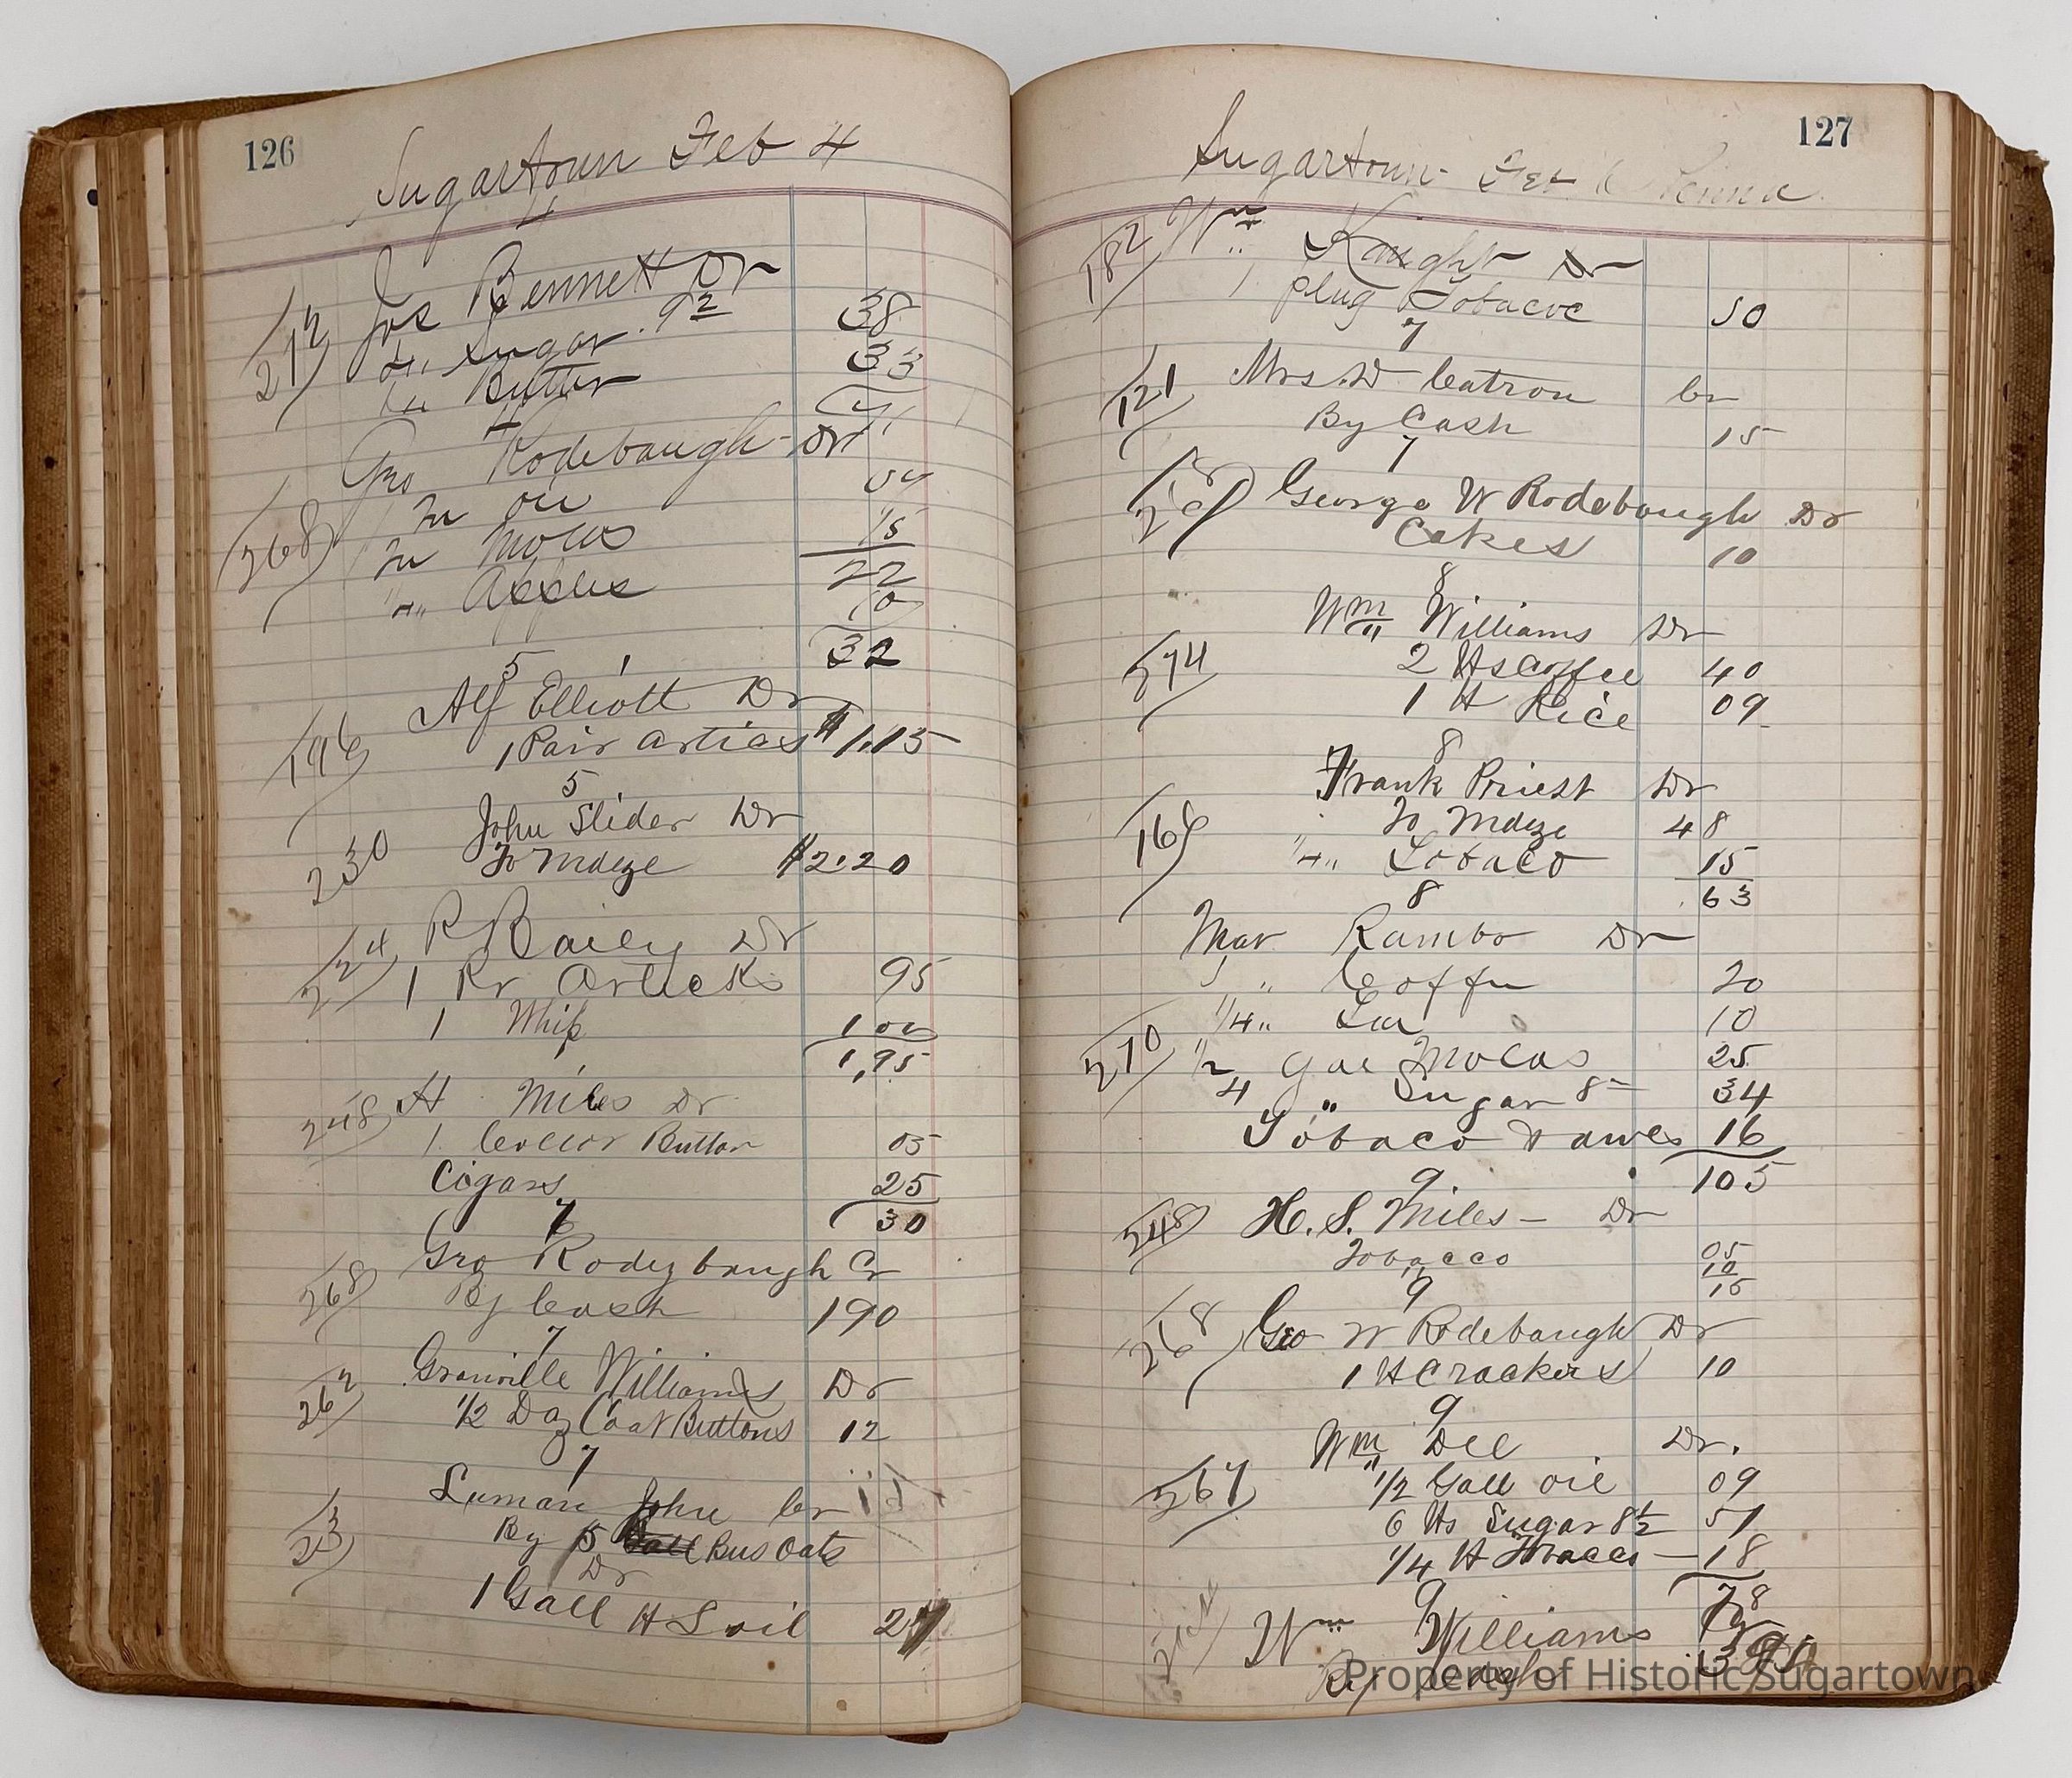 126
Sugartown Feb 4
4
Jos Bennett Dr
212
4 " Sugar 9½ 38
1 " Butter 33
71
4
Geo Rodebaugh Dr
268
oil
Molas 15
22
" " Apples 10
32
5
Alf Elliott Dr
196
1 Pair Artics $1.15
5
John Slider Dr
230
To Mdze $2.20
R Baily Dr
224
1 Pr Articks 95
1 Whip 1 00
1,95
H Miles Dr
248
1 Collor Button 05
Cigars 25
30
7
Geo Rodeybaugh Cr
268
By Cash 190
7
Granville Williams Dr
262
1/2 Doz Coat Buttons 12
7
John Cr
233
By 15 Gall Bus Oats
Dr
1 Gall H S oil 27
127
Sugartown Feb 6 Penna
182
Wm Knight Dr
1 plug Tobacoe 50
7
121
Mrs. D Catron Cr
By Cash 15
7
George W Rodebaugh Dr
Cakes 10
8
Wm Williams Dr
274
2 lbs Coffee 40
1 lb Rice 09
8
Frank Priest Dr
166
To Mdze 48
" 4 " Tobaco 15
63
8
Mar Rambo Dr
1 " Coffee 20
1/4 " Tea 10
270
1/2 gal Molas 25
4 " Sugar 8- 34
Tobaco 16
105
9
248
H. S. Miles - Dr
Tobacco 05
10
15
9
268
Geo W Rodebaugh Dr
1 lb Crackers 10
9
Wm Dee Dr.
267
1/2 Gall oil 09
6 lbs Sugar 8½ 51
1/4 lb Tobacco - 18
78
9
274
Wm Williams Cr
By Cash
Property of Historic Sugartown